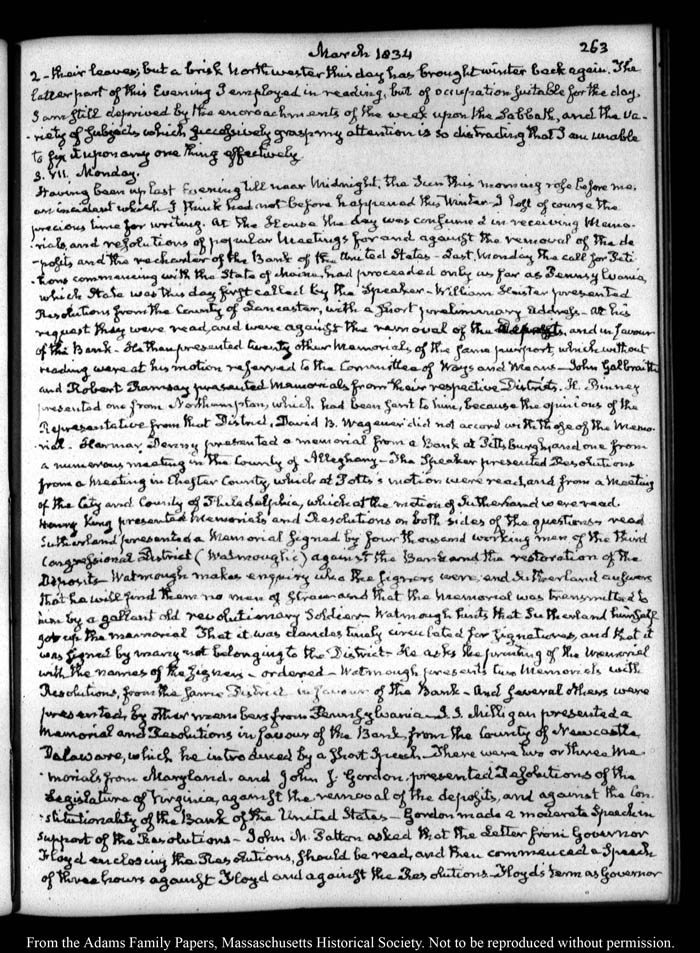 March 1834
263
2 - their leaves; but a brisk North wester this day has brought winter back again. The
latter part of this Evening I employed in reading, but of occupation suitable for the day,
I am still deprived by the encroachments of the week upon the Sabbath, and the va-
-riety of subjects which successively grasp my attention is so distracting that I am unable
to fix it upon any one thing effectively.
3. VII. Monday.
Having been up last Evening till near Midnight, the Sun this morning rose before me,
an incident which I think had not before happened this Winter. I lost of course the
precious time for writing. At the House the day was consumed in receiving Memo-
rials, and resolutions of popular Meetings for and against the removal of the de
-posits and the recharter of the Bank of the United States - Last Monday the call for Peti
tions commencing with the State of Maine, had proceeded only as far as Pennsylvania
which State was this day first called by the Speaker - William Hiester presented
Resolutions from the County of Lancaster, with a short preliminary address - at his
request they were read, and were against the removal of the Deposits, and in favour
of the Bank - He then presented twenty other Memorials of the same purport, which without
reading were at his motion referred to the Committee of Ways and Means - John Galbraith
and Robert Ramsay presented Memorials from their respective Districts. H. Binney
presented one from Northampton, which had been sent to him, because the opinions of the
Representative from that District, David D. Wagener did not accord with those of the Memo-
rial. Harmar Denny presented a memorial from a Bank at Pittsburgh, and one from
a numerous meeting in the County of Alleghany - The Speaker presented Resolutions
from a meeting in Chester County, which at Potts's motion were read, and from a Meeting
of the City and County of Philadelphia, which at the motion of Sutherland were read.
Henry King presented Memorials and Resolutions on both sides of the questions - read
Sutherland presented a Memorial signed by four thousand working men of the third
Congressional District (Watmough's) against the Bank and the restoration of the
Deposits - Watmough makes enquiry who the signers were, and Sutherland answers
that he will find them no men of straw and that the Memorial was transmitted to
him by a gallant old revolutionary Soldier - Watmough hints that Sutherland himself
got up the memorial That it was clandestinely circulated for signatures, and that it
was signed by many not belonging to the District - He asks the printing of the Memorial
with the names of the signers - ordered - Watmough presents two Memorials with
Resolutions, from the same District in favour of the Bank - And several others were
presented, by other members from Pennsylvania - J. J. Milligan presented a
Memorial and Resolutions in favour of the Bank, from the County of Newcastle
Delaware, which he introduced by a short Speech - There were two or three Me
-morials from Maryland - and John F. Gordon presented Resolutions of the
Legislature of Virginia, against the removal of the deposits, and against the Con
-stitutionality of the Bank of the United States - Gordon made a moderate Speech in
support of the Resolutions - John M. Patton asked that the Letter from Governor
Floyd enclosing the Resolutions, should be read, and then commenced a Speech
of three hours against Floyd and against the Resolutions - Floyd's term as Governor
From the Adams Family Papers, Massachusetts Historical Society. Not to be reproduced without permission.